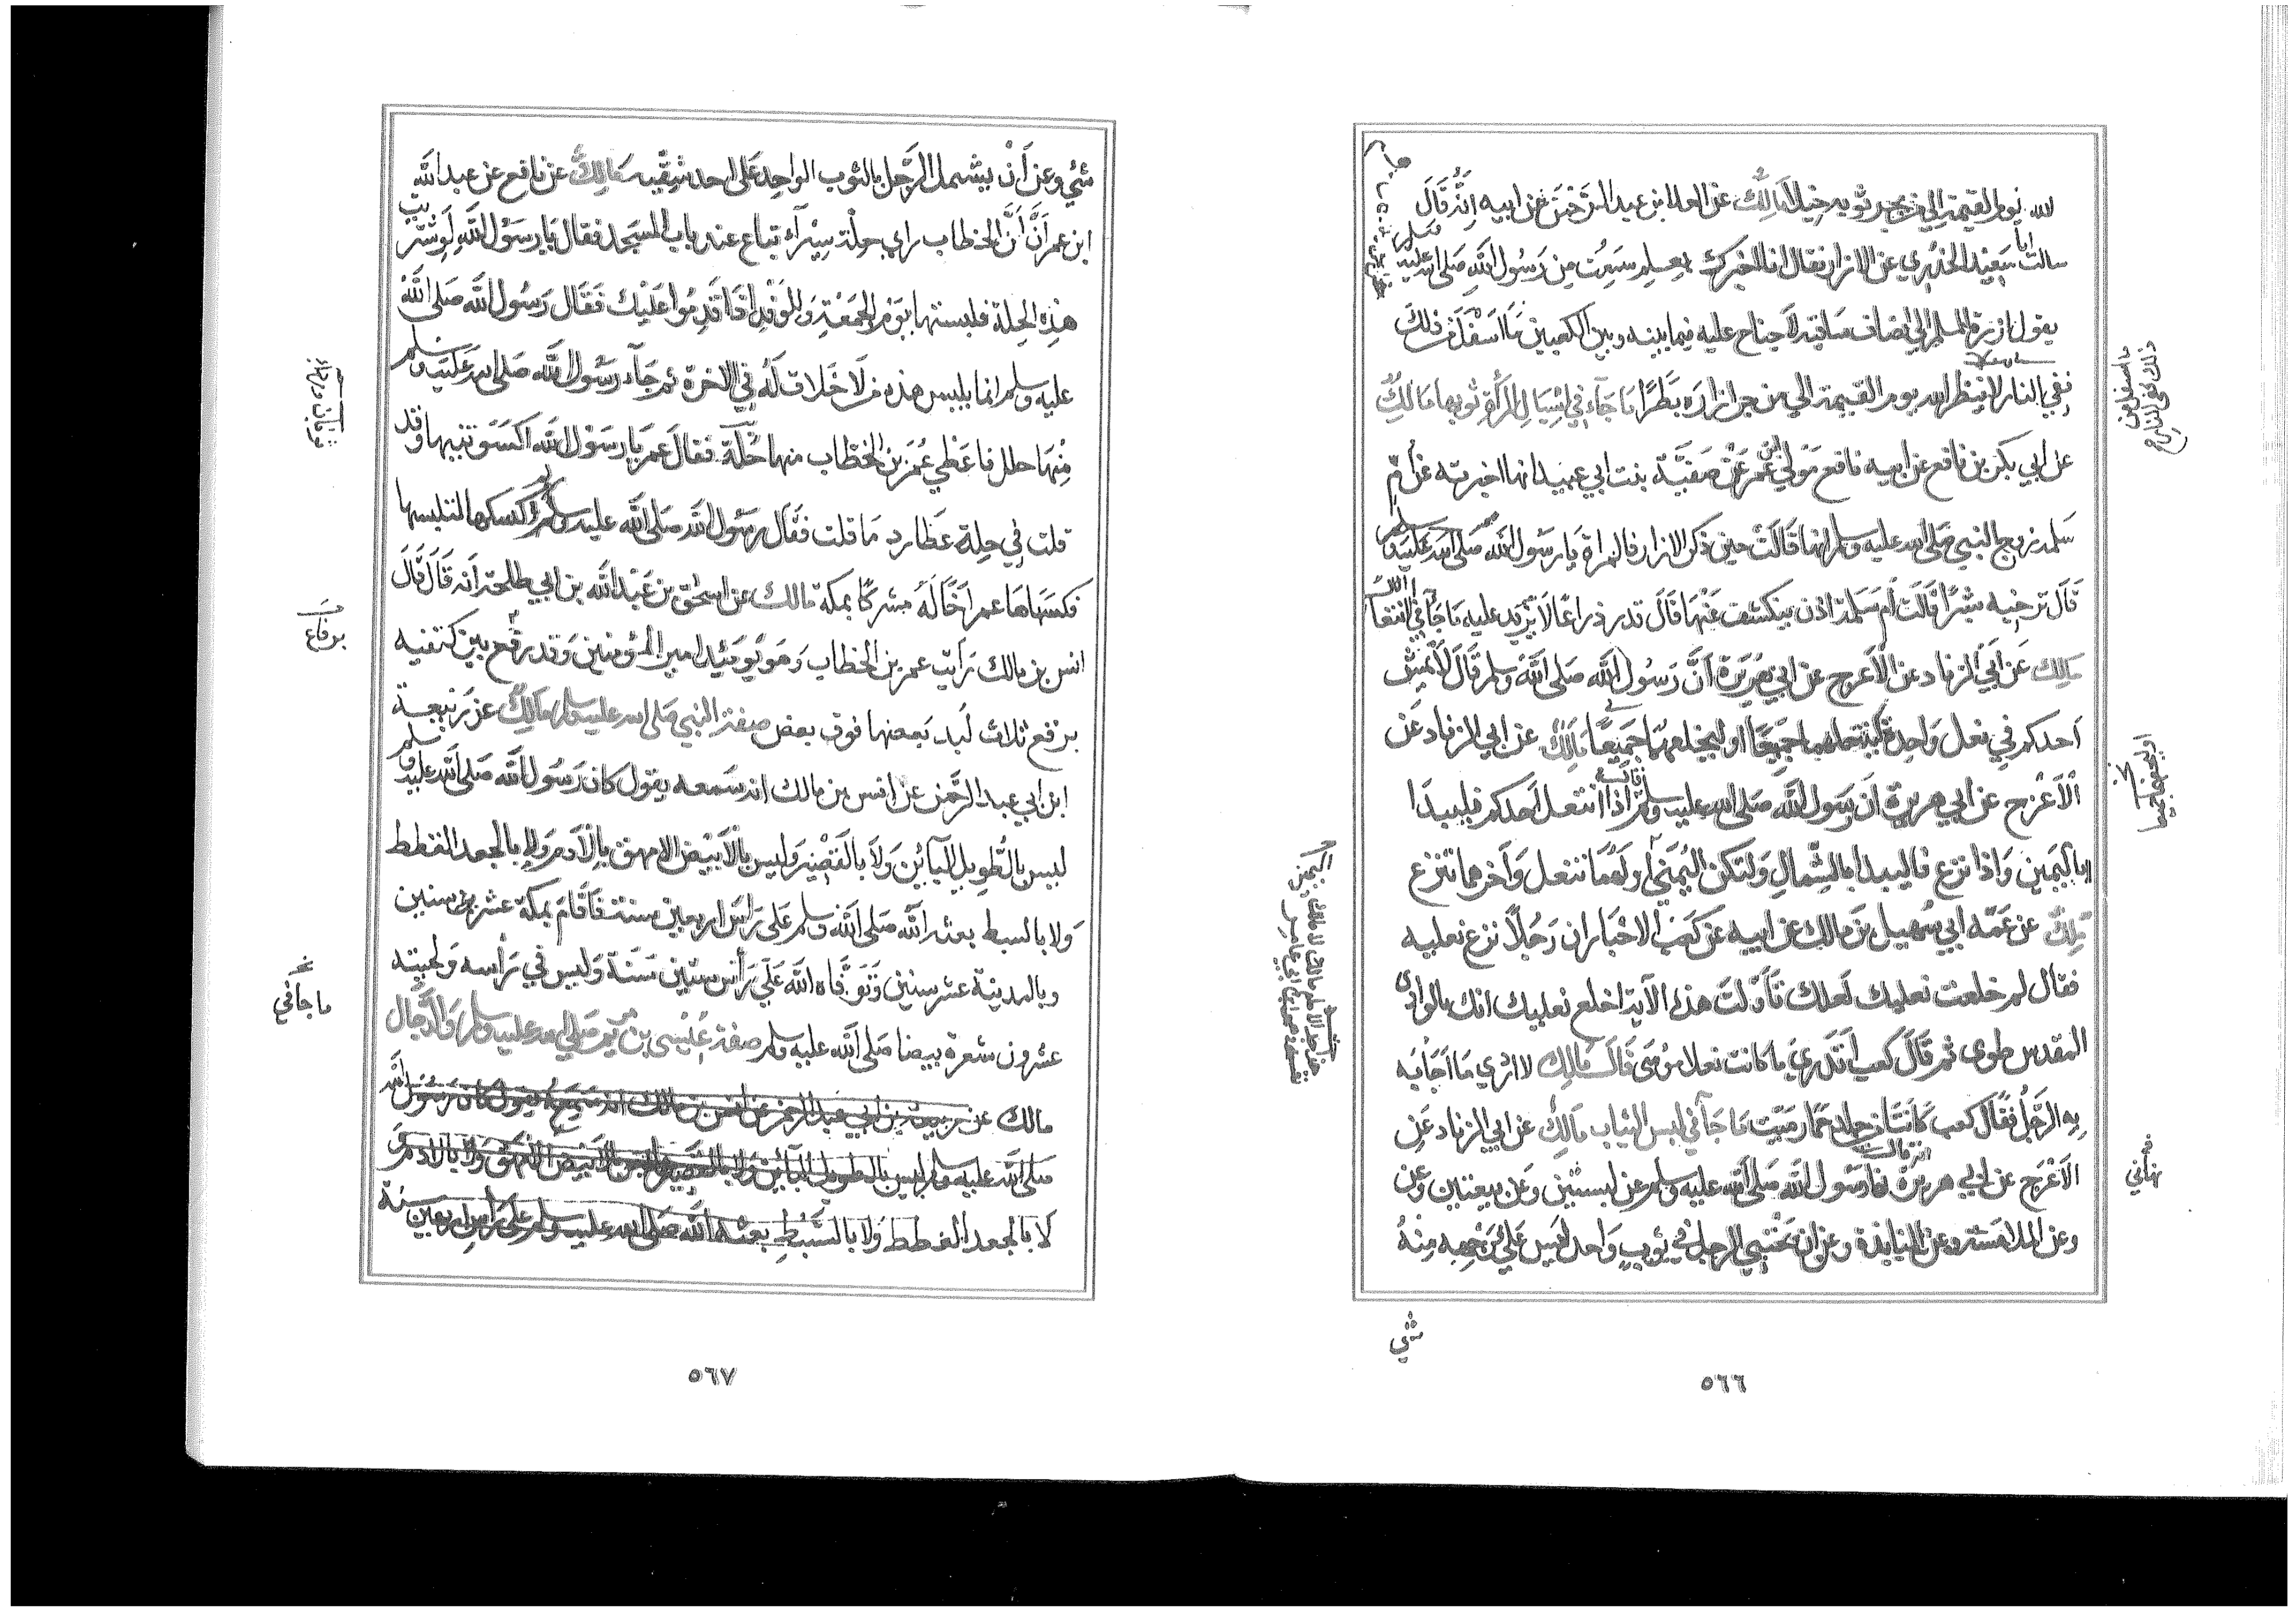 الله يوم القيمة الي من يجر ثوبه خيلا مالك عن العلا بن عبد الرحمن عن ابيه انه قال
سالت ابا سعيد الخدري عن الازار فقال انا اخبرك بعلم سمعت من رسول الله صلى الله عليه وسلم
يقول ازرة المسلم الي انصاف ساقيه لا جناح عليه فيما بينه وبين الكعبين ما اسفل من ذلك
ففي النار لا ينظر الله يوم القيمة الي من جر ازاره بطرا ما جاء في اسبال المرأة ثوبها مالك
عن ابي بكر بن نافع عن ابيه نافع مولي ابن عمر عن صفية بنت ابي عبيد انها اخبرته عن ام
سلمة زوج النبي صلى الله عليه وسلم انها قالت حين ذكر الازار فالمراة يا رسول الله صلى الله عليه وسلم
قال ترخيه شبرا قالت ام سلمة اذن ينكشف عنها قال قدر ذراعا لا تزيد عليه ما جا في انتعال
مالك عن ابي الزناد عن الاعرج عن ابي هريرة ان رسول الله صلى الله وسلم قال لا يمش
احدكم في نعل واحدة لينتعلهما جميعا او ليخلعهما جميعا مالك عن ابي الزناد عن
الاعرج عن ابي هريرة ان رسول الله صلى الله عليه وسلم قال اذا انتعل احدكم فليبدا
باليمين واذا نزع فاليبدا بالشمال ولتكن اليمنى اولهما تنعل واخرهما تنزع
مالك عن عمه ابي سهيل بن مالك عن ابيه عن كعب الاحبار ان رجلا نزع نعليه
فقال لم خلعت نعليك لعلك تأولت هذه الآية اخلع نعليك انك بالوادى
المقدس طوى ثم قال كعب اتدري ما كانت نعلا موسى قال مالك لا ادري ما اجابه
به الرجل فقال كعب كانتا من جلد حمار ميت ما جا في لبس الثياب مالك عن ابي الزناد عن
الاعرج عن ابي هريرة انه قال نها رسول الله صلى الله عليه وسلم عن لبستين وعن بيعتين وعن
وعن الملامسة وعن المنابذة وعن ان يحتبي الرجل في ثوب واحد ليس على فرجه منه
شي
نهاني
٥٦٦
شي وعن أن يشتمل الرجل بالثوب الواحد على احد شقيه مالك عن نافع عن عبد الله
ابن عمر أن الخطاب راي حلة سيرآء تباع عند باب المسجد فقال يا رسول الله لو شتريت
هذه الحلة فلبستها يوم الجمعة وللوفد اذا قدموا عليك فقال رسول الله صلى الله
عليه وسلم انما يلبس هذه من لا خلاق له في الاخرة ثم جآء رسول الله صلى الله عليه وسلم
منها حلل فاعطي عمر بن الخطاب منها حلة فقال عمر يا رسول الله اكسوتنيها وقد
قلت في حلة عطارد ما قلت فقال رسول الله صلى الله عليه وسلم لم اكسكها لتلبسها
فكساها عمر اخا له مشركا بمكة مالك عن اسحق بن عبد الله بن ابي طلحة انه قال قال
انس بن مالك رأيت عمر بن الخطاب وهو يومئذ امير المؤمنين وقد رقع بين كتفيه
برقع ثلاث لبد بعضها فوق بعض صفة النبي صلى الله عليه وسلم مالك عن ربيعة
ابن ابي عبد الرحمن عن انس بن مالك انه سمعه يقول كان رسول الله صلى الله عليه وسلم
ليس بالطويل البائن ولا بالقصير وليس بالأبيض الامهق بالآدم ولا بالجعد القطط
ولا بالسبط بعثه الله صلى الله وسلم على راس اربعين سنة فاقام بمكة عشر سنين
وبالمدينة عشر سنين وتوفاه الله على رأس ستين سنة وليس في رأسه ولحيته
عشرون شعرة بيضا صلى الله عليه وسلم صفة عيسى بن مريم صلى الله عليه وسلم والدجال
مالك عن ربيعة بن ابي عبد الرحمن عن انس بن مالك انه سمعه يقول كان رسول الله
صلى الله عليه وسلم ليس بالطويل البائن ولا بالقصير وليس بالأبيض الامهق ولا بالادم
لا بالجعد القطط ولا بالسبط بعثه الله صلى الله عليه وسلم على رأس اربعين سنة
برقاع
ما جا في
٥٦٧